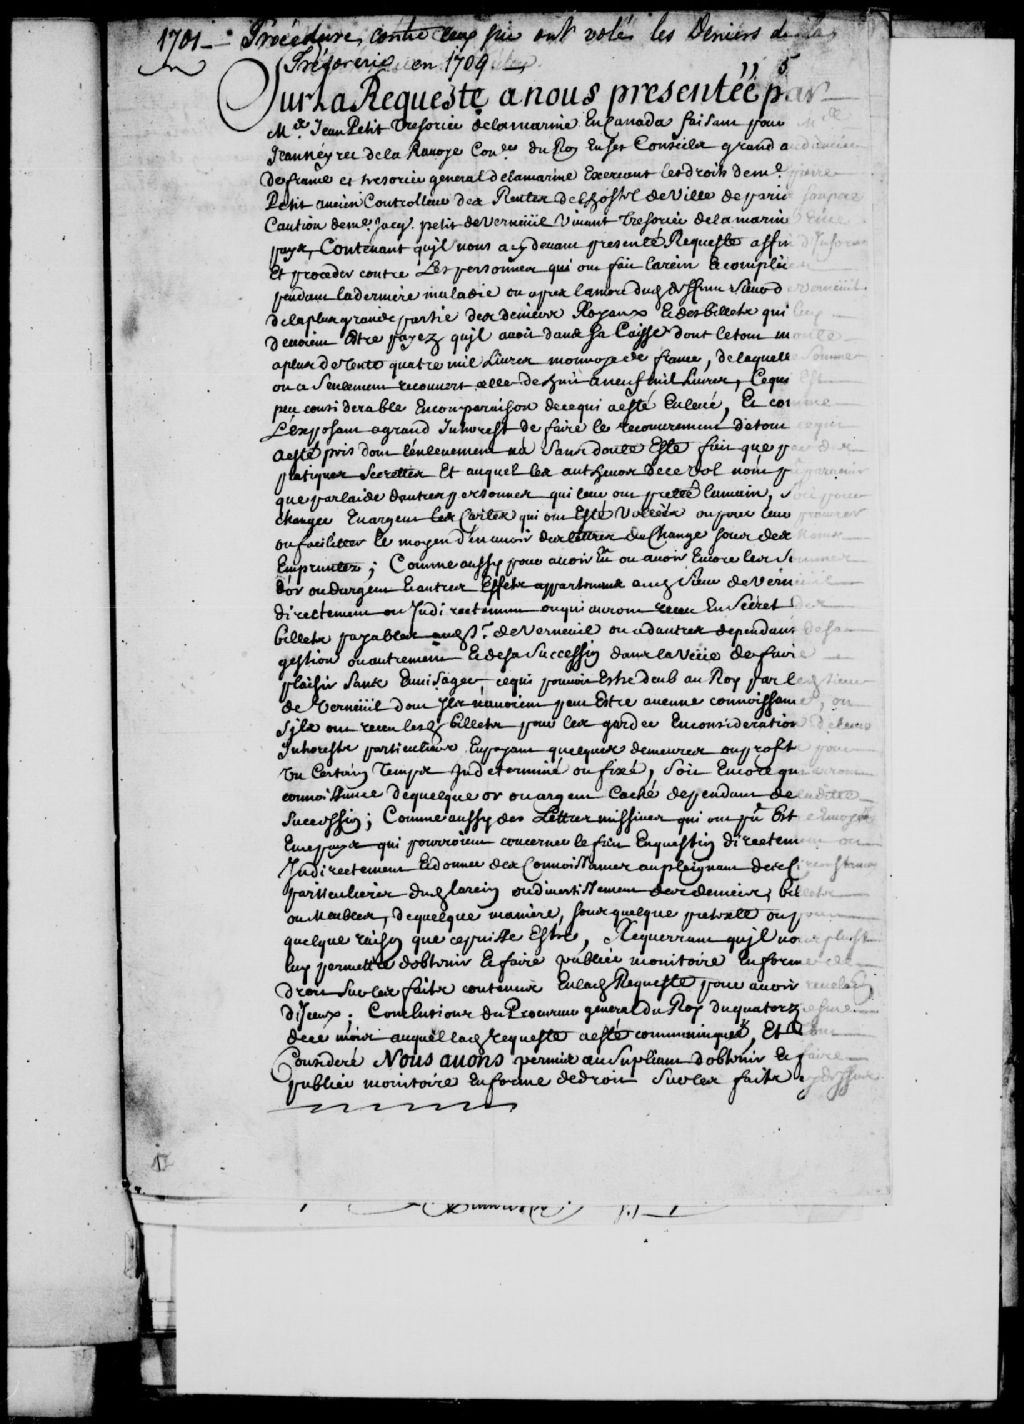 1701 — Procédure contre ceux qui ont volés les Deniers de la
Trésorerie en 1709
5
Sur La Requeste a nous presentéé par
Me. Jean Petit Tresorier de la marine En Canada faisant pour Me
Jeanneyrec de la Rauoye Coner du Roy En ses Conseils grand audiancier
de france et tresorier general de la marine Exercant les droits de me. pierre
Petit ancien Controlleur des Rentes de L'hostel de Ville de paris
Caution de me. Jacq. petit de Verneüil Viuant Tresorier de la marine
pays, Contenant qu'jl nous a cy deuant presenté Requeste affin d'Informer
Et proceder contre Les personnes qui ont fait larcin & complices
pendant la derniere maladie ou apres la mort dud. deffunt sieur de verneuil
de la plus grande partie des deniers Royaux & des billets qui luy
deuoient Estre payez qu'jl auoit dans sa Caisse dont le tout monte
a plus de trente quatre mil Liures monnoye de france, de laquelle somme
on a Seulement recouuert celle de huit a neuf mil Liures, Ce qui Est
peu considerable En comparaison de ce qui a esté Enleué, Et comme
L'exposant a grand Interest de faire le recouurement de tout ce qui
a esté pris dont l'enleuement na Sans doute Esté fait que par des
pratiques Secrettes Et auquel les autheurs de ce vol n'ont pû paruenir
que par l'aide d'autres personnes qui leur ont presté la main, soit pour
changer En argent les Cartes qui ont Esté Vollées ou pour leur procurer
ou faciliter le moyen d'en auoir des lettres de Change sous des Noms
Empruntez; Comme aussy pour auoir û ou auoir Encore les sommes
d'or ou d'argent & autres Effets appartenant aud. Sieur de Verneüil
directement ou Indirectement ou qui auront receu En Secret des
billets payables aud. Sr. de Verneuil ou a d'autres dependans de sa
gestion ou autrement & de sa Succession dans la Veüe de faire
plaisir Sans Enuisager ce qui pouuoit Estre deub au Roy par led. sieur
de Verneüil dont Ils n'auoient peut Estre aucune connoissance, ou
S'jls ont receu lesd. billets pour les garder En consideration de leurs
Interests particuliers En payant quelques demeures ou profits pour
Un Certain Temps Indeterminé ou fixé, Soit Encore qu'
connoissance de quelque or ou argent Caché dependant de ladite
Succession; Comme aussy des Lettres missiues qui ont pû Estre Enuoyées
En ce pays qui pourroient concerner le fait En question directement ou
Indirectement & donner des Connoissances au plaignant des Circonstances
particulieres dud. larcin ou diuertissement des deniers, billets
ou Meubles, de quelque maniere, sous quelque pretexte ou pour
quelque raison que ce puisse Estre, Requerrant qu'jl nous plust
luy permettre d'obtenir & faire publier monitoire En forme de
droit Sur les faits contenus En lad. Requeste pour auoir reuelation
d'Iceux; Conclusions du Procureur general du Roy du quatorziesme
de ce mois auquel lad. requeste a esté communiquée, Et tout
Consideré Nous auons permis au Supliant d'obtenir & faire
publier monitoire En forme de droit Sur les faits cy dessus